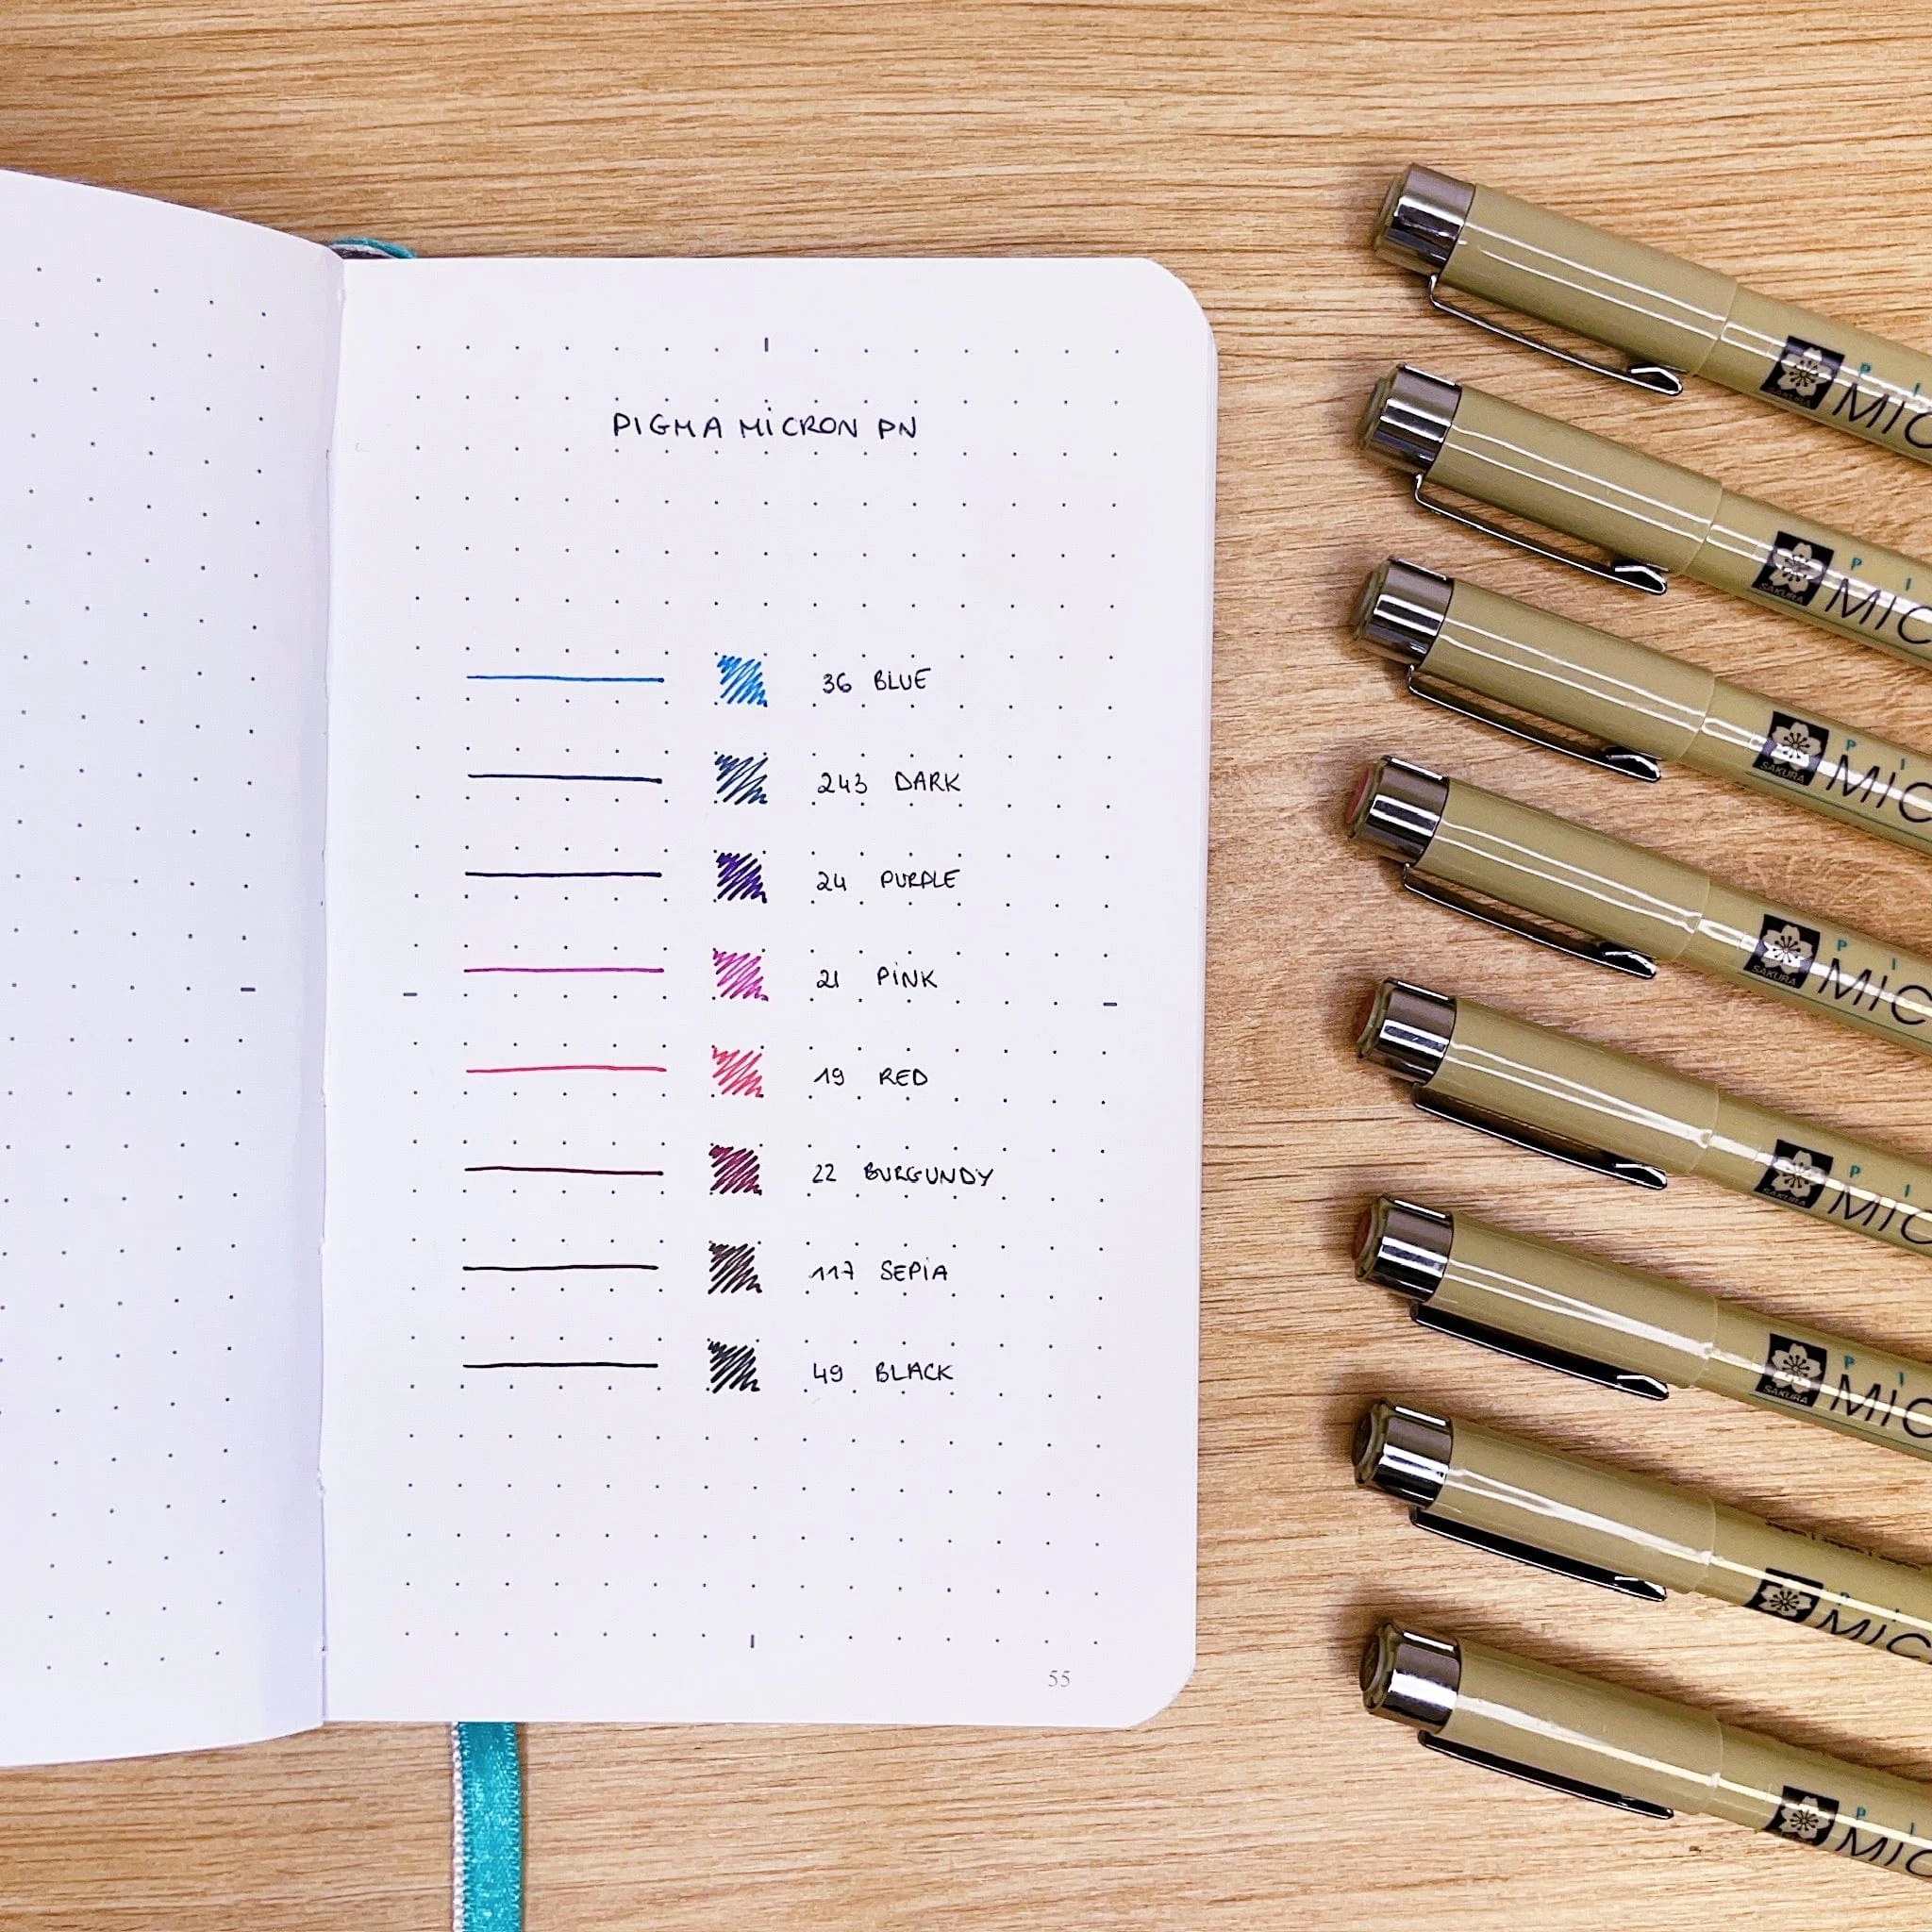 PIGMA MICRON PN
36 BLUE
243 DARK
24 PURPLE
21 PINK
19 RED
22 BURGUNDY
117 SEPIA
49 BLACK
55
PI
MIC
PI
SAKURA
MIC
PI
SAKURA
MIC
PI
SAKURA
MIC
PI
SAKURA
MIC
PI
SAKURA
MIC
MIC
PI
MIC